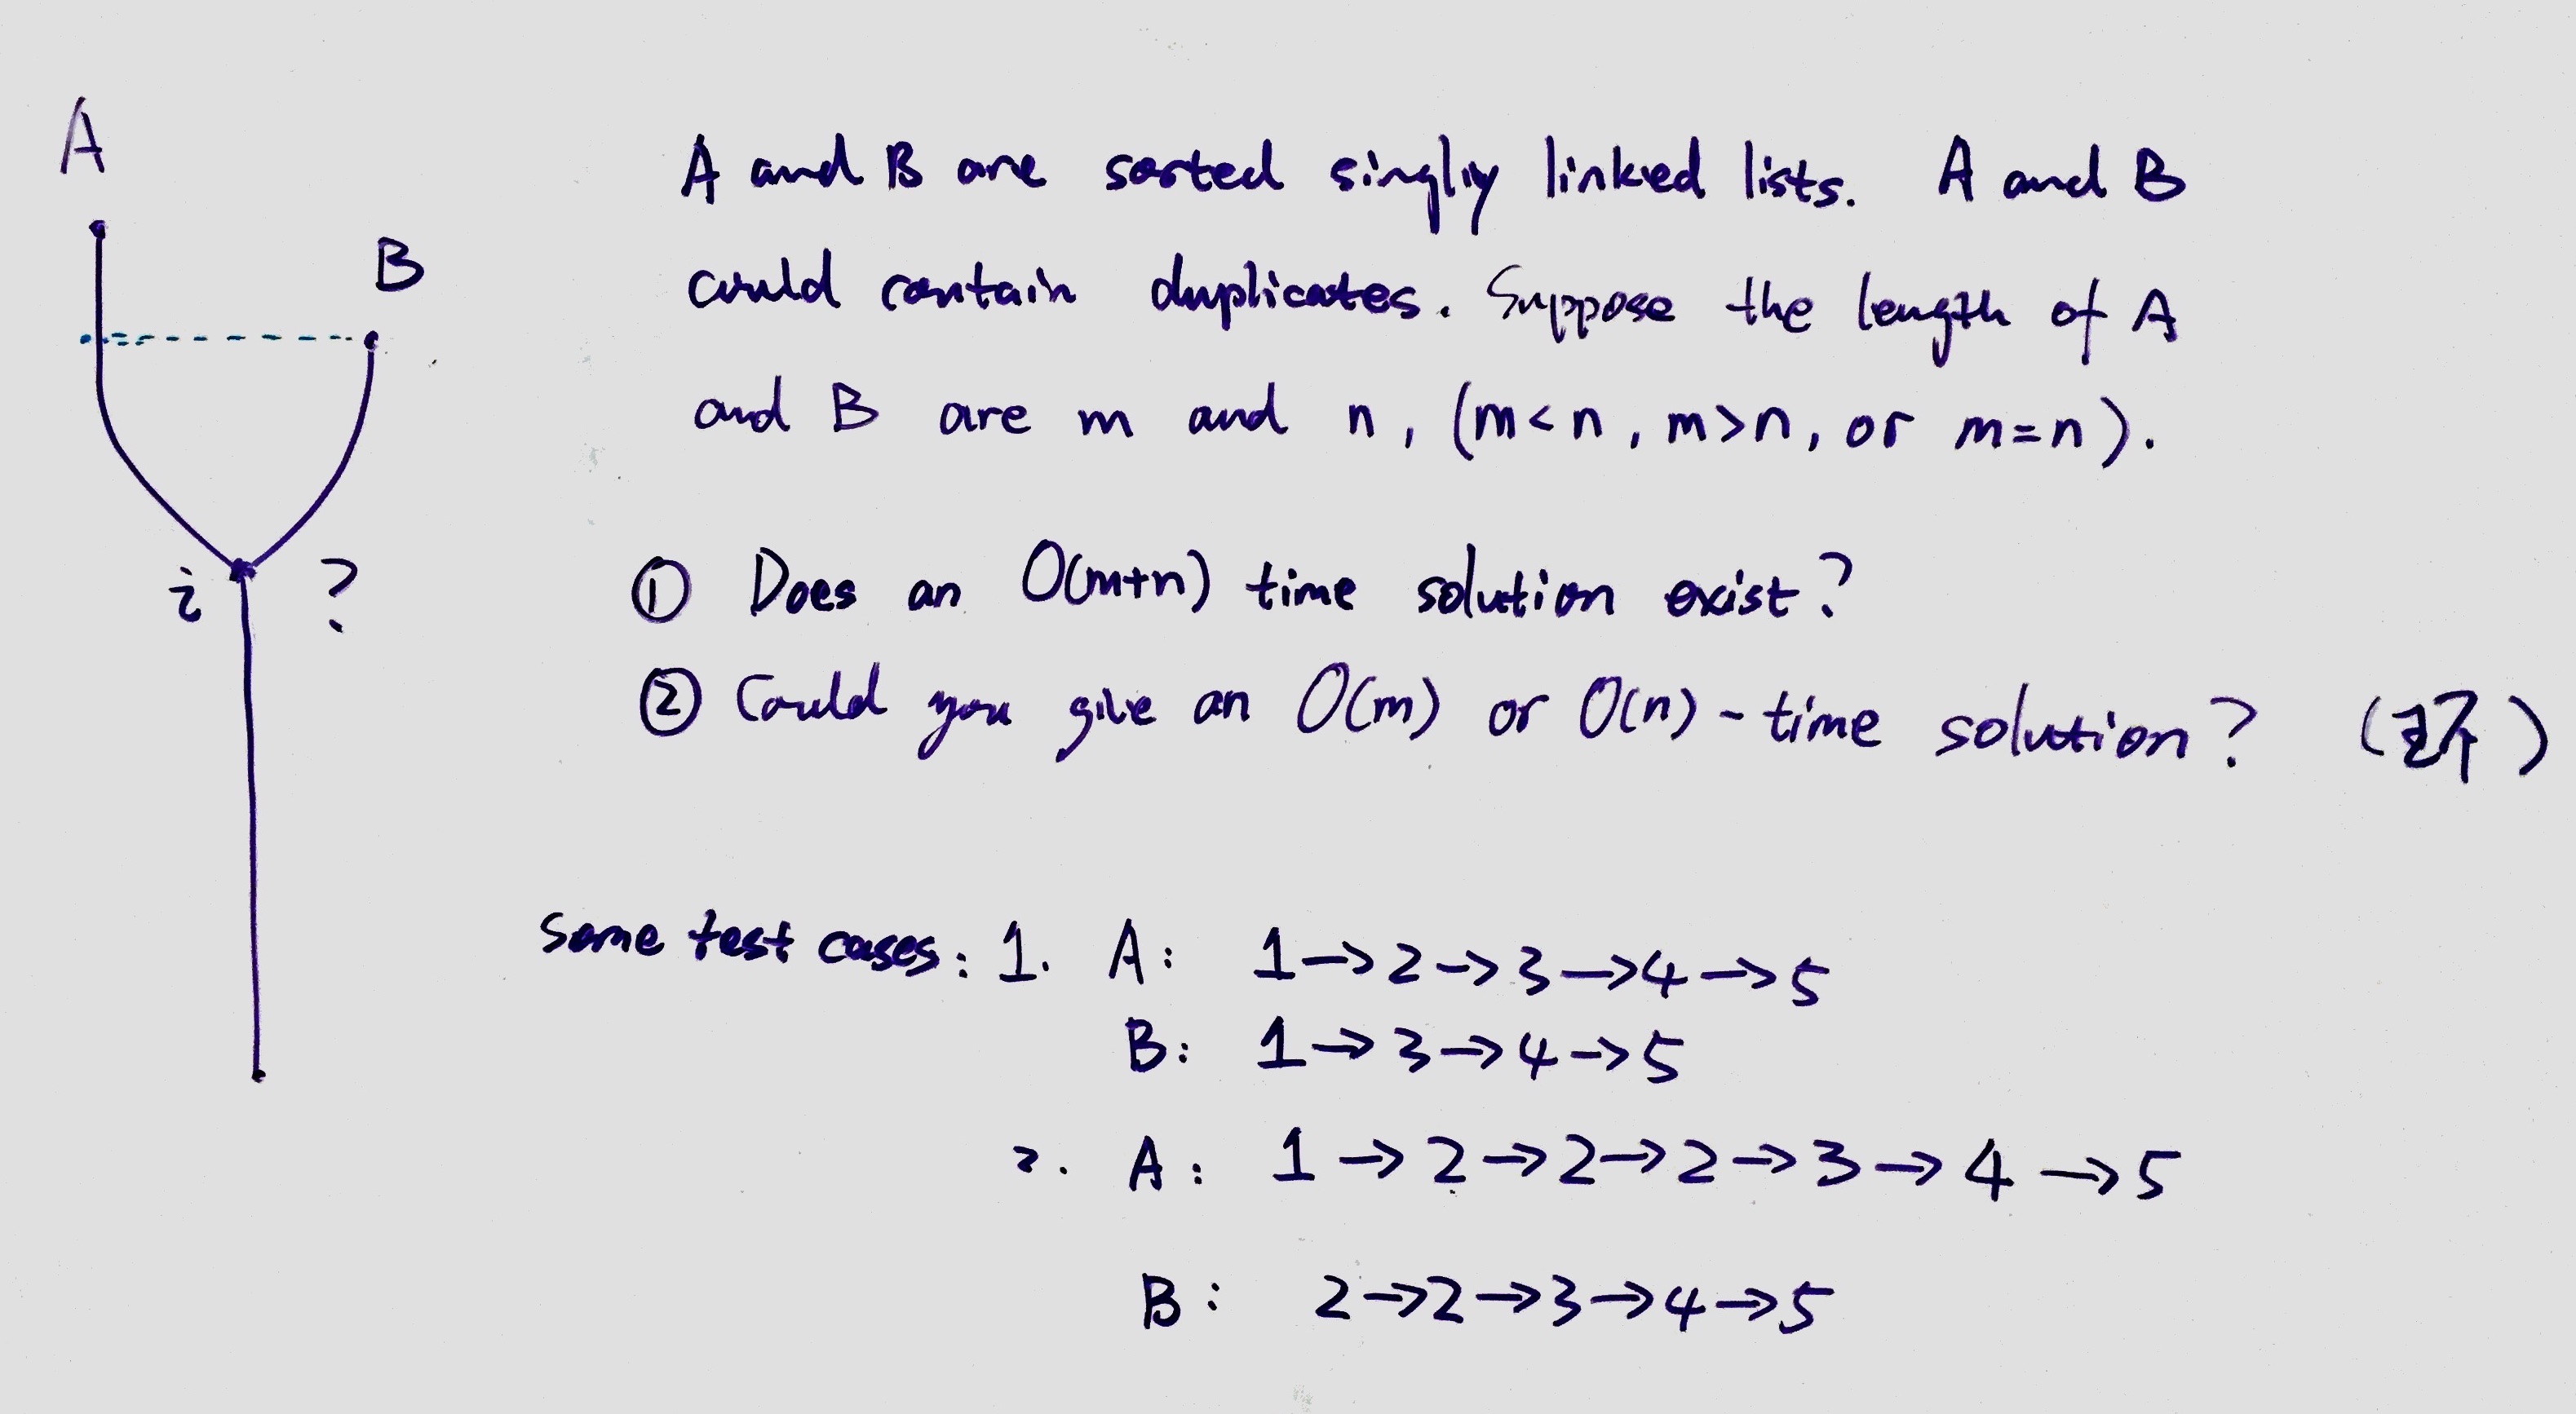 A
B
i ?
A and B are sorted singly linked lists. A and B
could contain duplicates. Suppose the length of A
and B are m and n, (m<n, m>n, or m=n).
① Does an O(m+n) time solution exist?
② Could you give an O(m) or O(n)-time solution?
Some test cases: 1. A: 1→2→3→4→5
B: 1→3→4→5
2. A: 1→2→2→2→3→4→5
B: 2→2→3→4→5